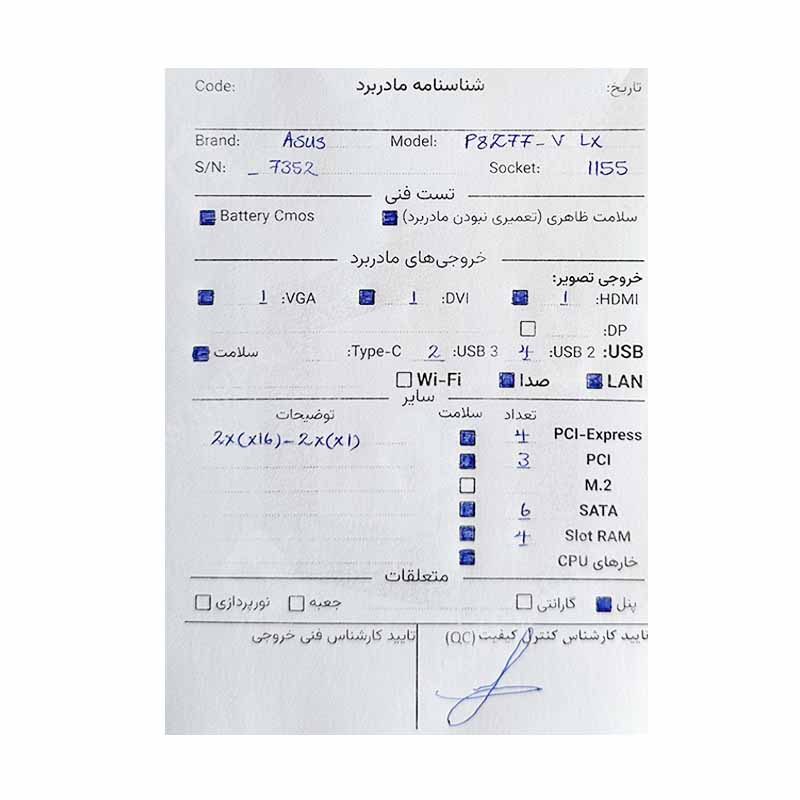 شناسنامه مادربرد
تاریخ:
Code:
Brand: Asus Model: P8Z77-V LX
S/N: _ 7352 Socket: 1155
تست فنی
سلامت ظاهری (تعمیری نبودن مادربرد) Battery Cmos
خروجی‌های مادربرد
خروجی تصویر:
HDMI: 1 DVI: 1 VGA: 1
DP:
USB: USB 2: 4 USB 3: 2 Type-C: سلامت
LAN صدا Wi-Fi
سایر
تعداد سلامت توضیحات
PCI-Express 4 2x(x16)-2x(x1)
PCI 3
M.2
SATA 6
Slot RAM 4
خارهای CPU
متعلقات
پنل گارانتی جعبه نورپردازی
تایید کارشناس کنترل کیفیت (QC) تایید کارشناس فنی خروجی